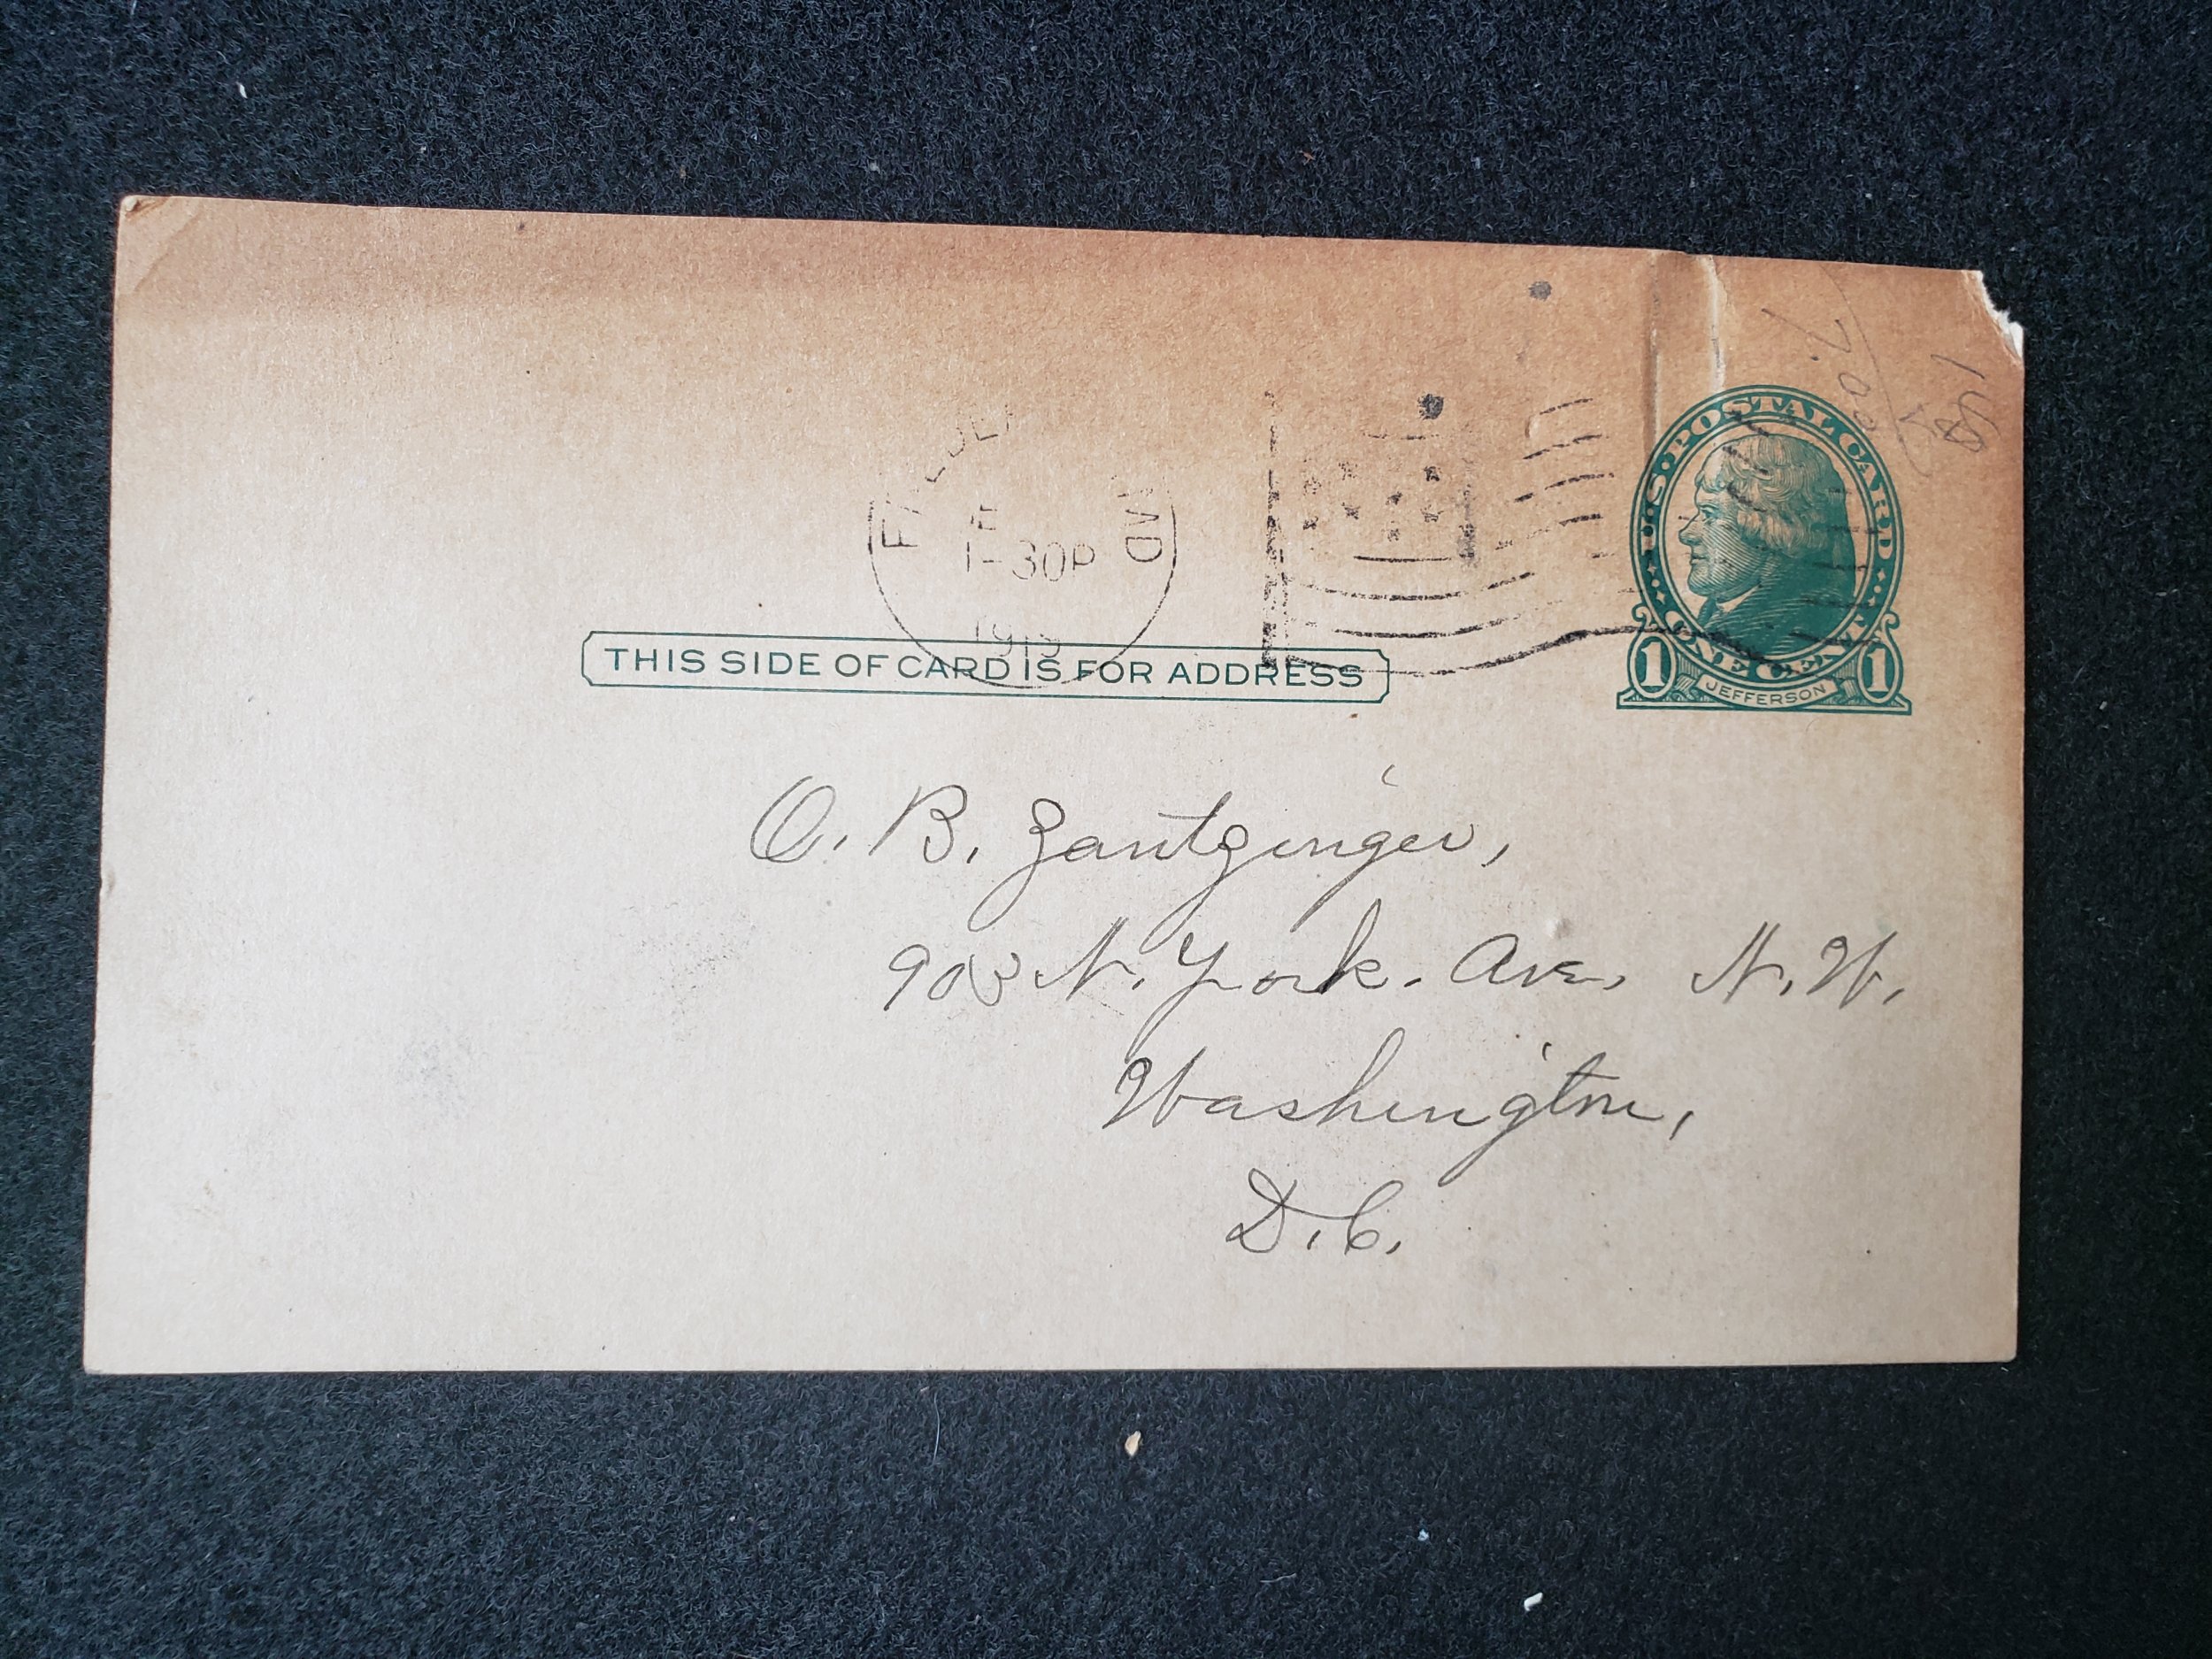 1-30P
U.S. POSTAL CARD
ONE CENT
1 JEFFERSON 1
7.00
THIS SIDE OF CARD IS FOR ADDRESS
O. B. Zantzinger,
903 N. York. Ave, N.W.
Washington,
D.C.